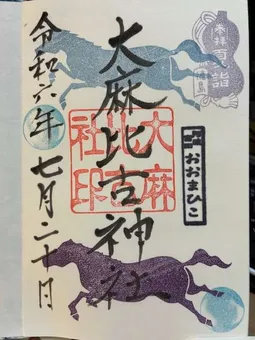 奉拝
夏詣
大麻比古神社
大麻
比古
社印
おおまひこ
令和六年 七月二十日